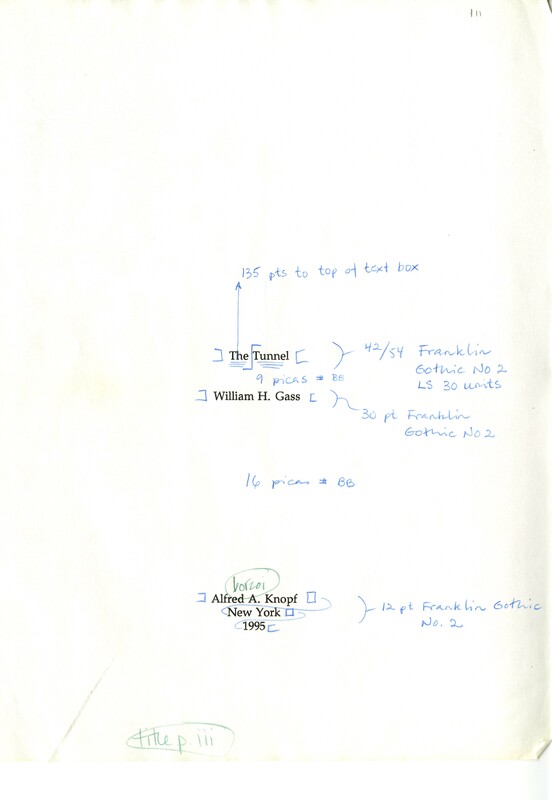 iii
135 pts to top of text box
The Tunnel
42/54 Franklin
Gothic No 2
LS 30 units
9 picas # BB
William H. Gass
30 pt Franklin
Gothic No 2
16 picas # BB
borzoi
Alfred A. Knopf
New York
1995
12 pt Franklin Gothic
No. 2
title p. iii